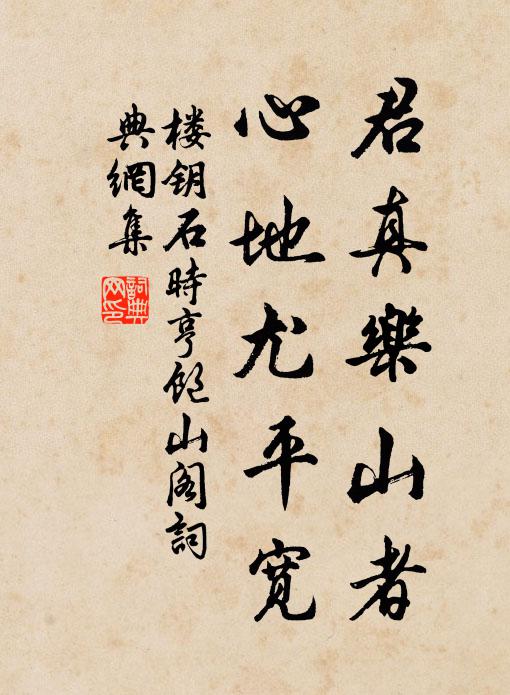 君真樂山者
心地尤平寬
楼钥石時亨飽山阁詞
典網集
詞典网印